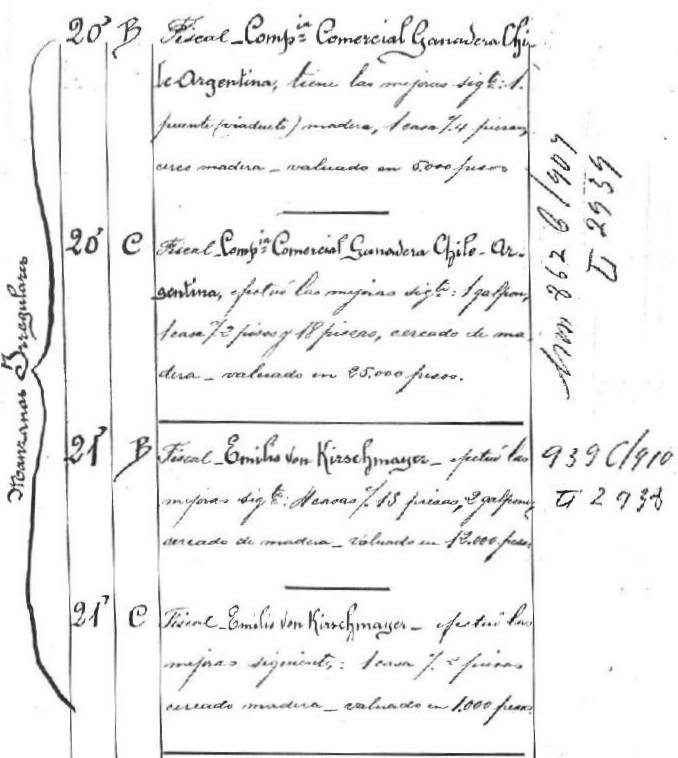 Manzanas Irregulares
20' B Fiscal _ Compía Comercial Ganadera Chi-
le Argentina, tiene las mejoras sigte: 1.
puente (viaducto) madera, 1 casa %4 piezas,
cerco madera _ valuado en 5.000 pesos
20' C Fiscal Compía Comercial Ganadera Chile - Ar-
gentina, efectuó las mejoras sigte: 1 galpon,
1 casa % 2 pisos y 18 piezas, cercado de ma-
dera _ valuado en 25.000 pesos.
21' B Fiscal _ Emilio von Kirschmayer _ efectuó las
mejoras sigte: 4 casas % 15 piezas, 2 galpones,
cercado de madera _ valuado en 12.000 pesos
21' C Fiscal _ Emilio von Kirschmayer _ efectuó las
mejoras siguiente,: 1 casa % 2 piezas
cercado madera _ valuado en 1.000 pesos
C/909
2939
939 C/910
2938